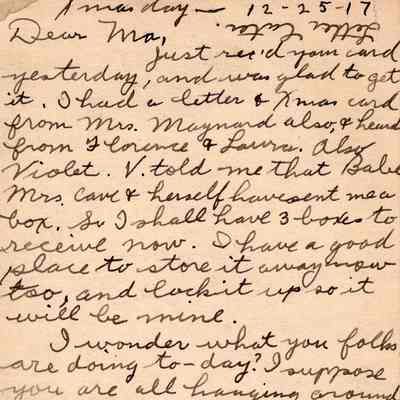 Xmas day — 12-25-17.
Letter Later.
Dear Ma,
Just rec'd your card
yesterday, and was glad to get
it. I had a letter & Xmas card
from Mrs. Maynard also, & heard
from Florence & Laura. Also
Violet. V. told me that Babe
Mrs. Cave & herself have sent me a
box. So I shall have 3 boxes to
receive now. I have a good
place to store it away now
too, and lock it up so it
will be mine.
I wonder what you folks
are doing to-day? I suppose
you are all hanging around